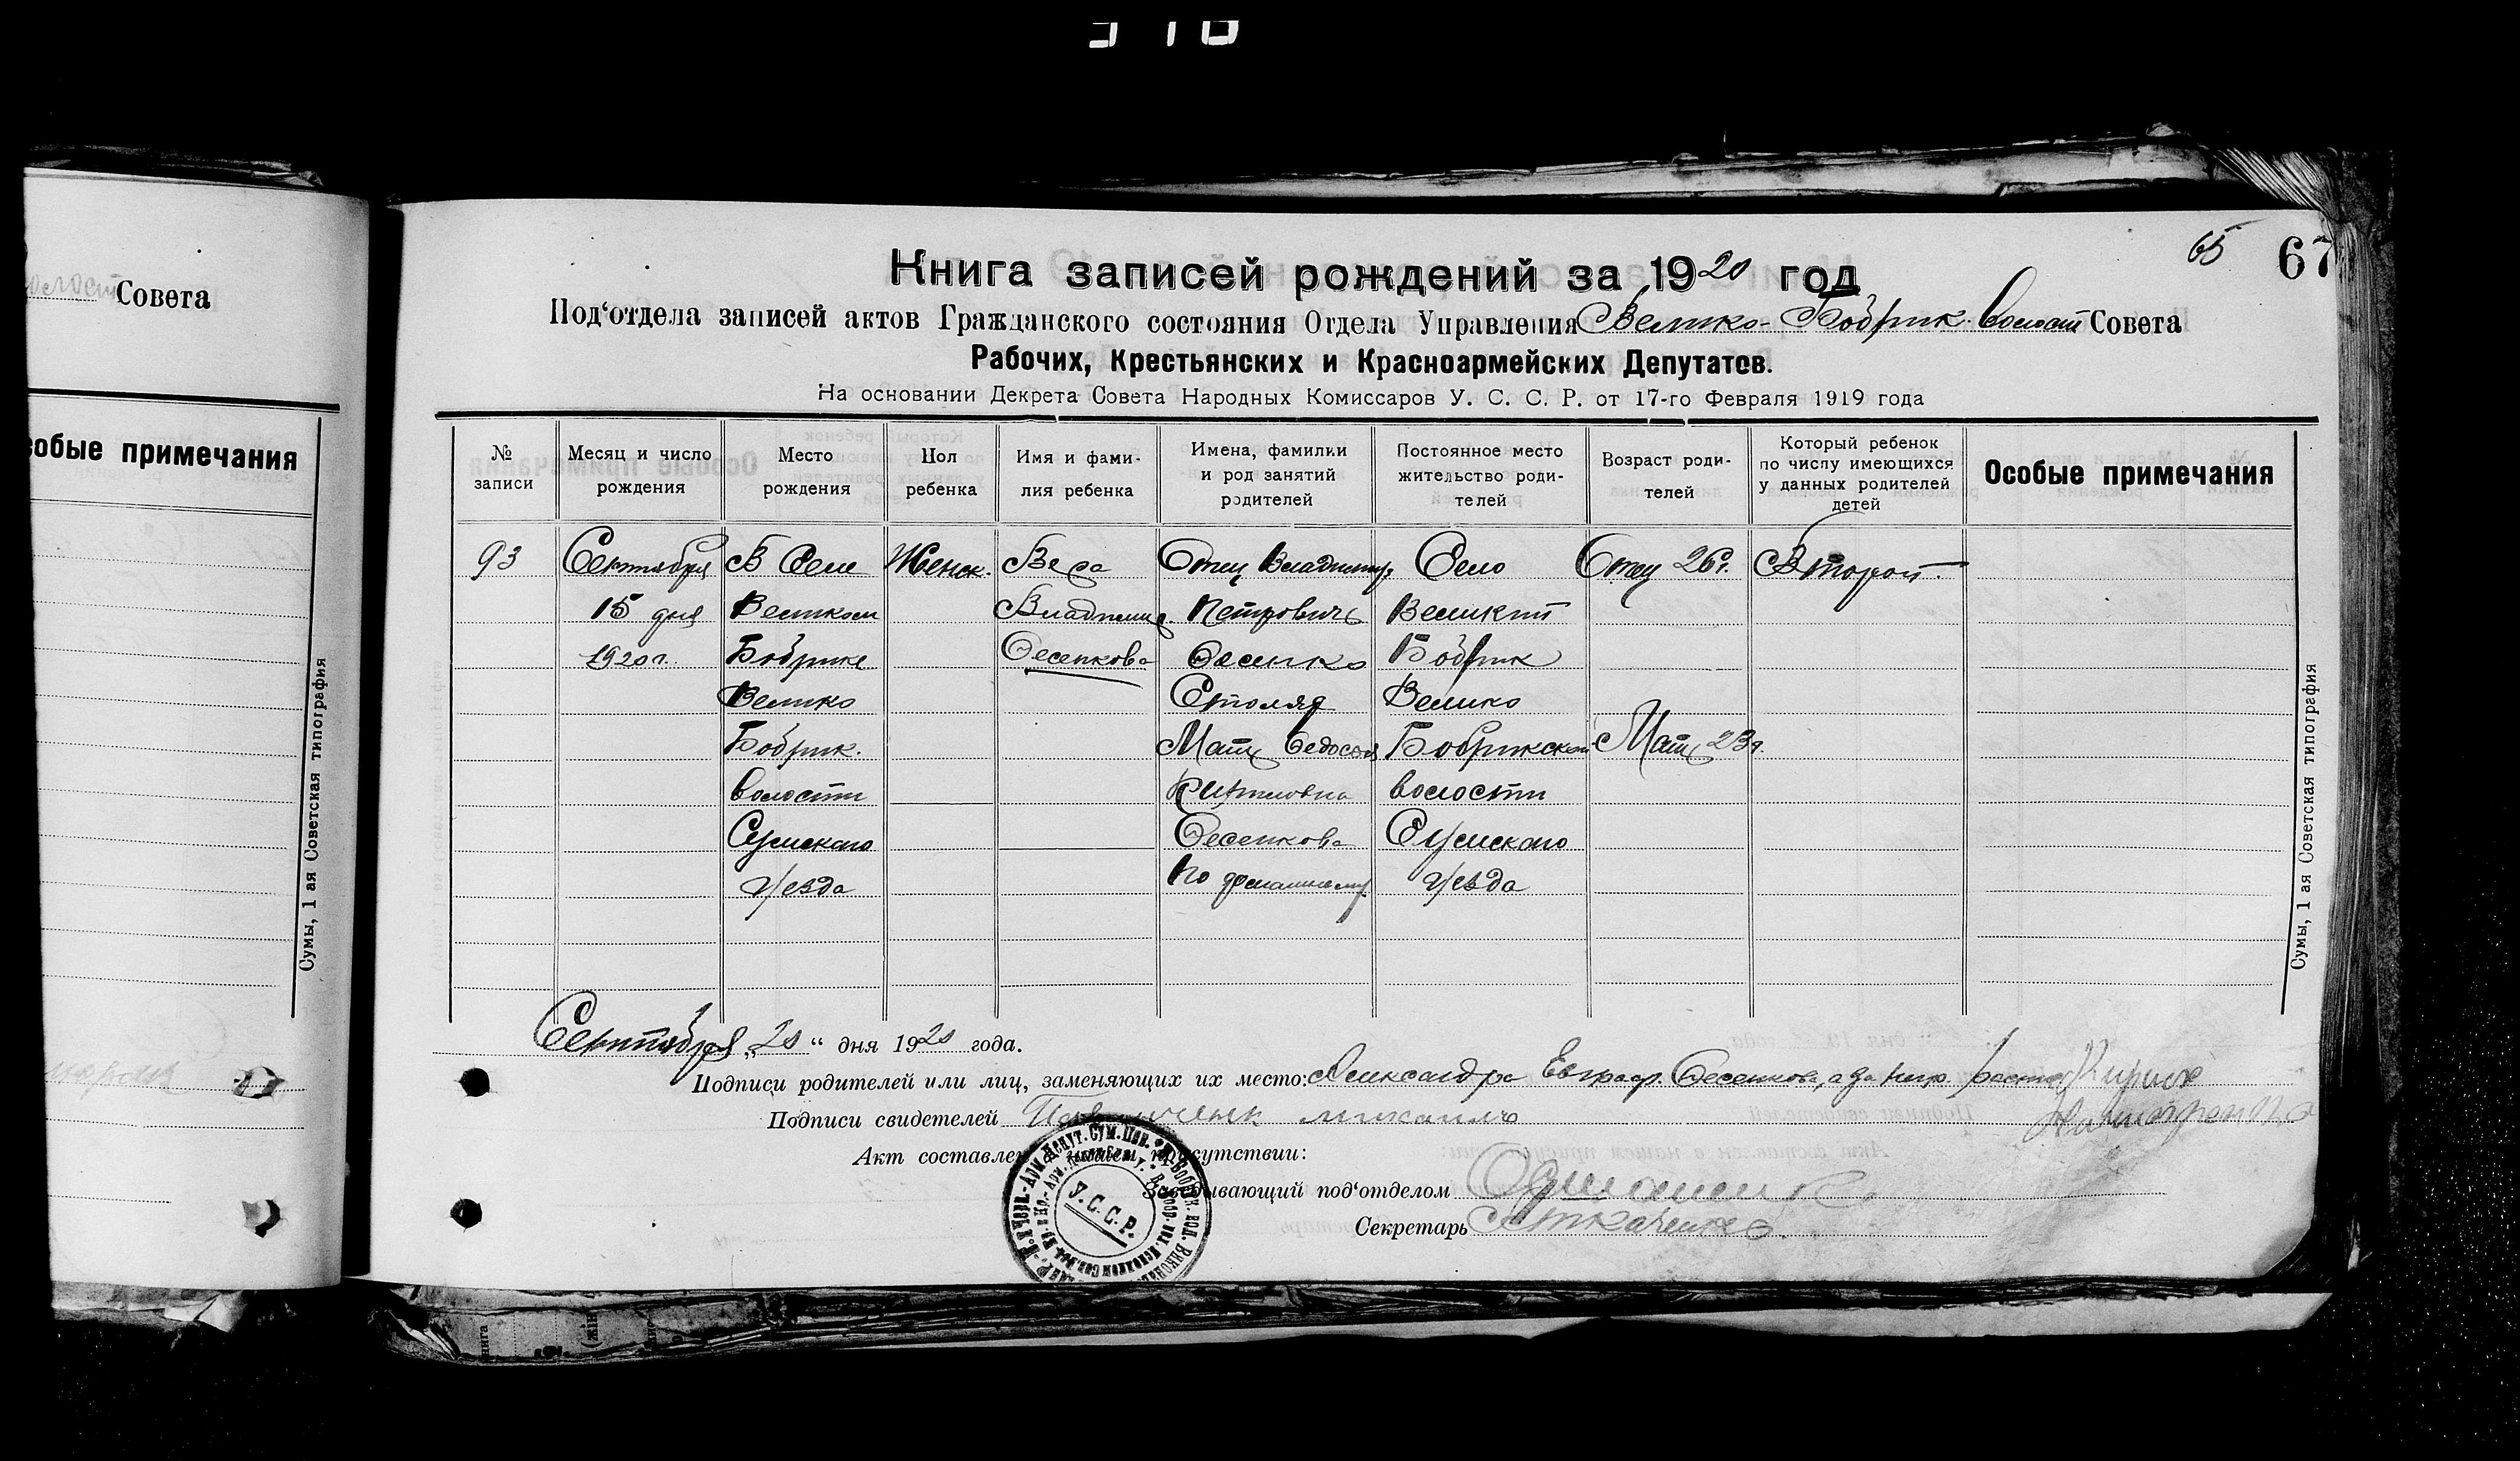 олост Совета
собые примечания
Сумы, 1 ая Советская типография
65 67
Книга записей рождений за 1920 год
Под‘отдела записей актов Гражданского состояния Отдела Управления Велико-Бобрик. Волост Совета
Рабочих, Крестьянских и Красноармейских Депутатов.
На основании Декрета Совета Народных Комиссаров У. С. С. Р. от 17-го Февраля 1919 года
№ записи
Месяц и число рождения
Место рождения
Пол ребенка
Имя и фами- лия ребенка
Имена, фамилии и род занятий родителей
Постоянное место жительство роди- телей
Возраст роди- телей
Который ребенок по числу имеющихся у данных родителей детей
Особые примечания
93 Сентября В Селе Женск. Вера Отец Владимир Село Отец 26 г. Второй.
15 дня Великом Владимир. Петровичъ Великий
1920 г. Бобрике Фесенкова Фесенко Бобрик
Велико Столяр Велико
Бобрик. Мать Федосия Бобрикской Мать 23 г.
волости волости
Сумского Фесенкова Сумского
уезда По домашнему уезда
Сумы, 1 ая Советская типография
Сентября „20“ дня 1920 года.
Подписи родителей или лиц, заменяющих их место: Александра Евграф. Фесенкова, а за негр. распис. Кирилл
Подписи свидетелей
Акт составлен в нашем присутствии:
Заведывающий под‘отделом
Секретарь Ткаченко
У. С. С. Р.